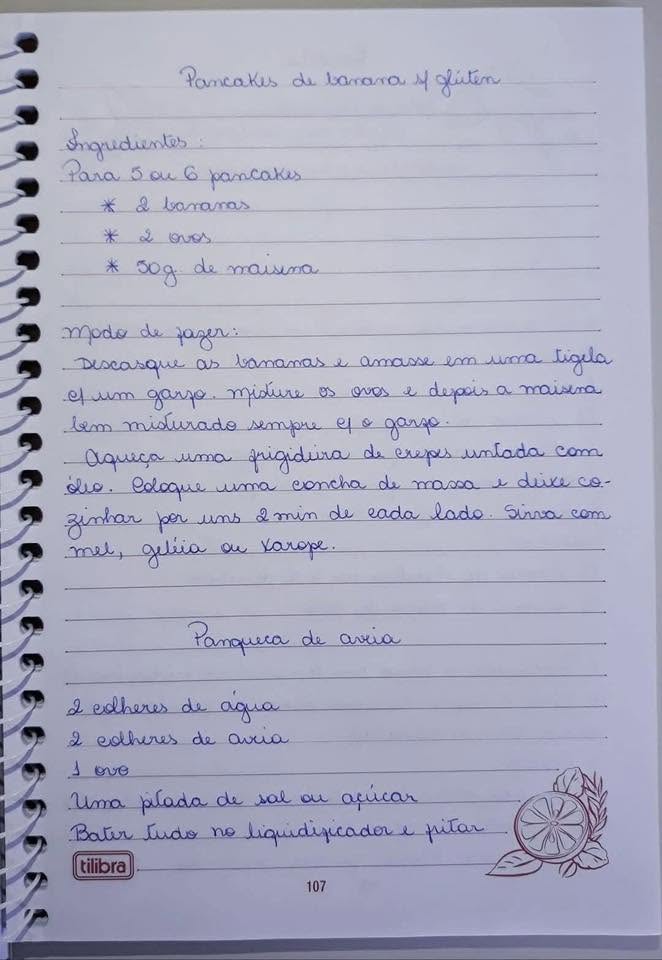 Pancakes de banana s/ glúten
Ingredientes:
Para 5 ou 6 pancakes
* 2 bananas
* 2 ovos
* 50g. de maisena
Modo de fazer:
Descasque as bananas e amasse em uma tigela
c/ um garfo. Misture os ovos e depois a maisena
bem misturado sempre c/ o garfo.
Aqueça uma frigideira de crepes untada com
óleo. Coloque uma concha de massa e deixe co-
zinhar por uns 2 min de cada lado. Sirva com
mel, geléia ou xarope.
Panqueca de aveia
2 colheres de água
2 colheres de aveia
1 ovo
Uma pitada de sal ou açúcar
Bater tudo no liquidificador e fritar
tilibra
107